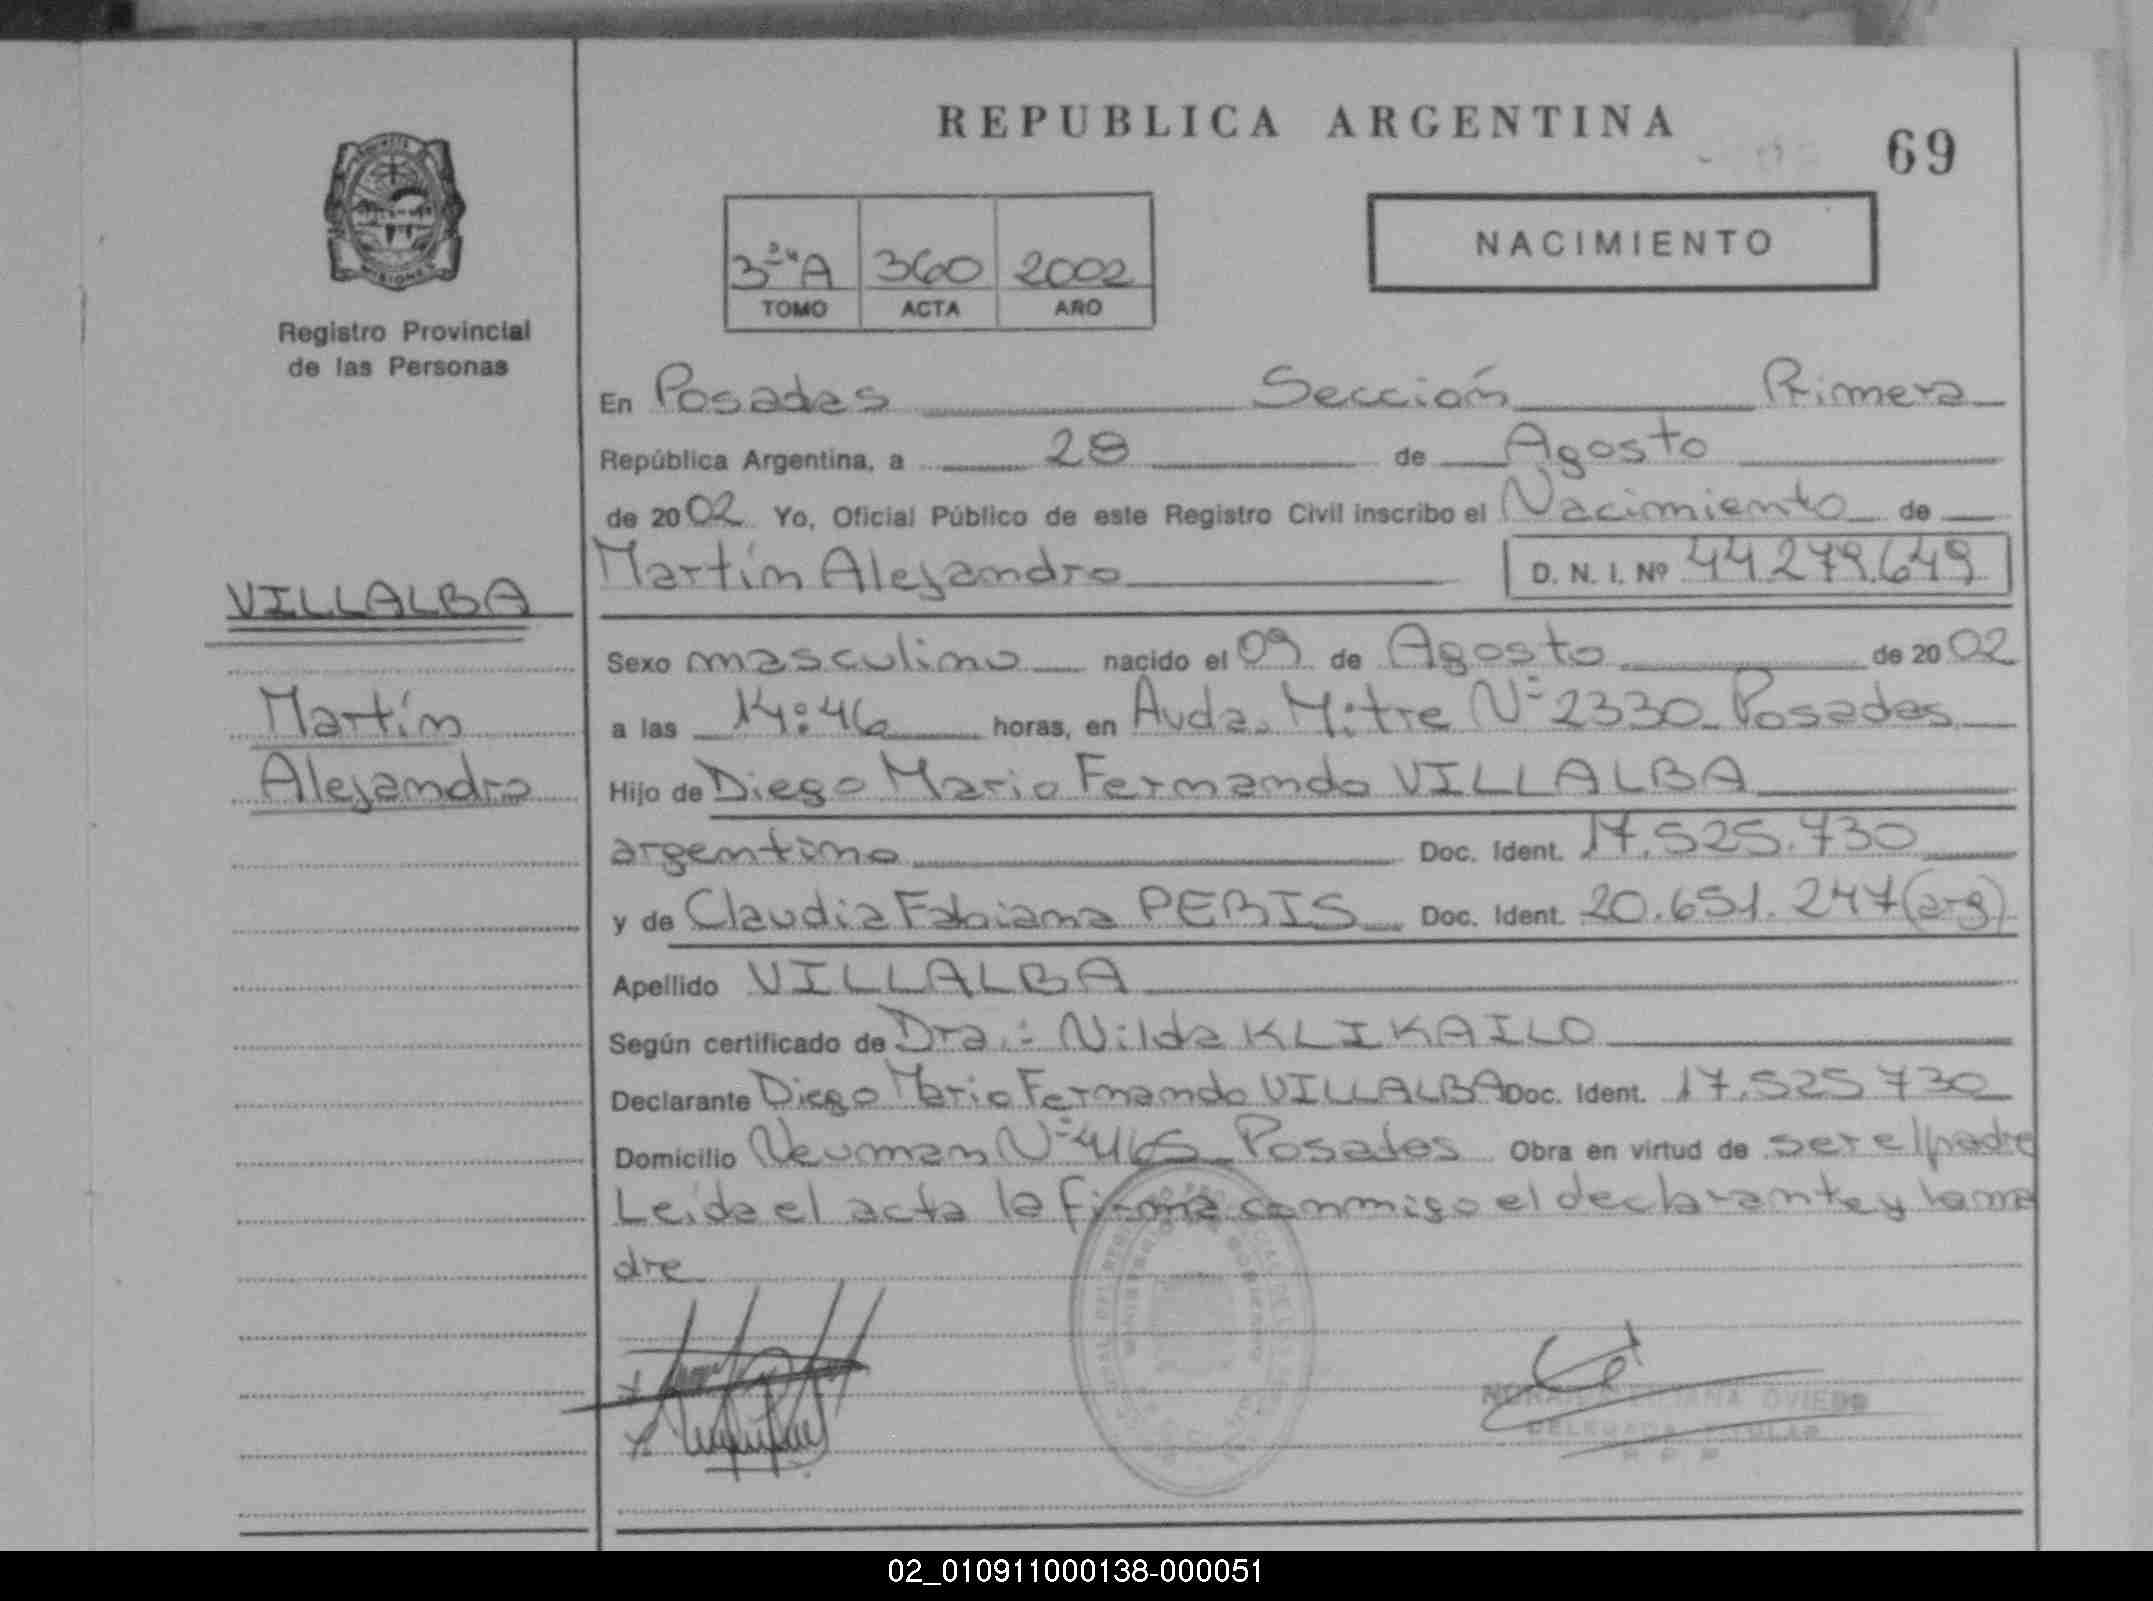 REPUBLICA ARGENTINA
69
3ra A 360 2002
TOMO ACTA AÑO
NACIMIENTO
MISIONES
Registro Provincial
de las Personas
VILLALBA
Martín
Alejandro
En Posadas Sección Primera
República Argentina, a 28 de Agosto
de 2002 Yo, Oficial Público de este Registro Civil inscribo el Nacimiento de
Martín Alejandro D. N. I. Nº 44.279.649
Sexo masculino nacido el 09 de Agosto de 2002
a las 14:46 horas, en Avda. Mitre Nº 2330 Posadas
Hijo de Diego Mario Fernando VILLALBA
argentino Doc. Ident. 17.525.730
y de Claudia Fabiana PERIS Doc. Ident. 20.651.247 (arg)
Apellido VILLALBA
Según certificado de Dra.: Nilda KLIKAILO
Declarante Diego Mario Fernando VILLALBA Doc. Ident. 17.525.730
Domicilio Neuman Nº 4165 Posadas Obra en virtud de ser el padre
Leída el acta la firma conmigo el declarante y la ma
dre
OVIEDO
DELEGADA TITULAR
02_010911000138-000051